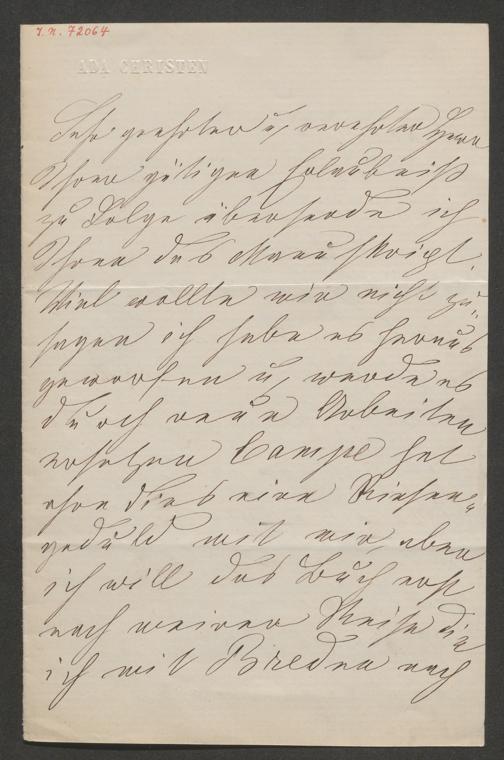 I. N. 72064
ADA CHRISTEN
Sehr geehrter u, verehrter Herr
Ihrer gütigen Erlaubniß
zu Folge übersende ich
Ihnen das Manuskript.
Viel wollte mir nicht zu-
sagen ich habe es heraus
geworfen u, werde es
durch neue Arbeiten
ersetzen Campe hat
eine Riesen-
geduld mit mir, aber
ich will das Buch erst
nach meiner Reise die
ich mit Breden nach